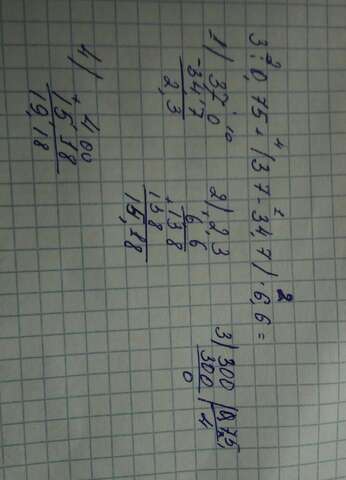 3:0,75 + (37 - 34,7) · 6,6 =
1) 37,0
- 34,7
2,3
2) 2,3
6,6
+ 138
138
15,18
3) 300 | 0,75
300 | 4
0
4) 4 00
+ 15,18
19,18